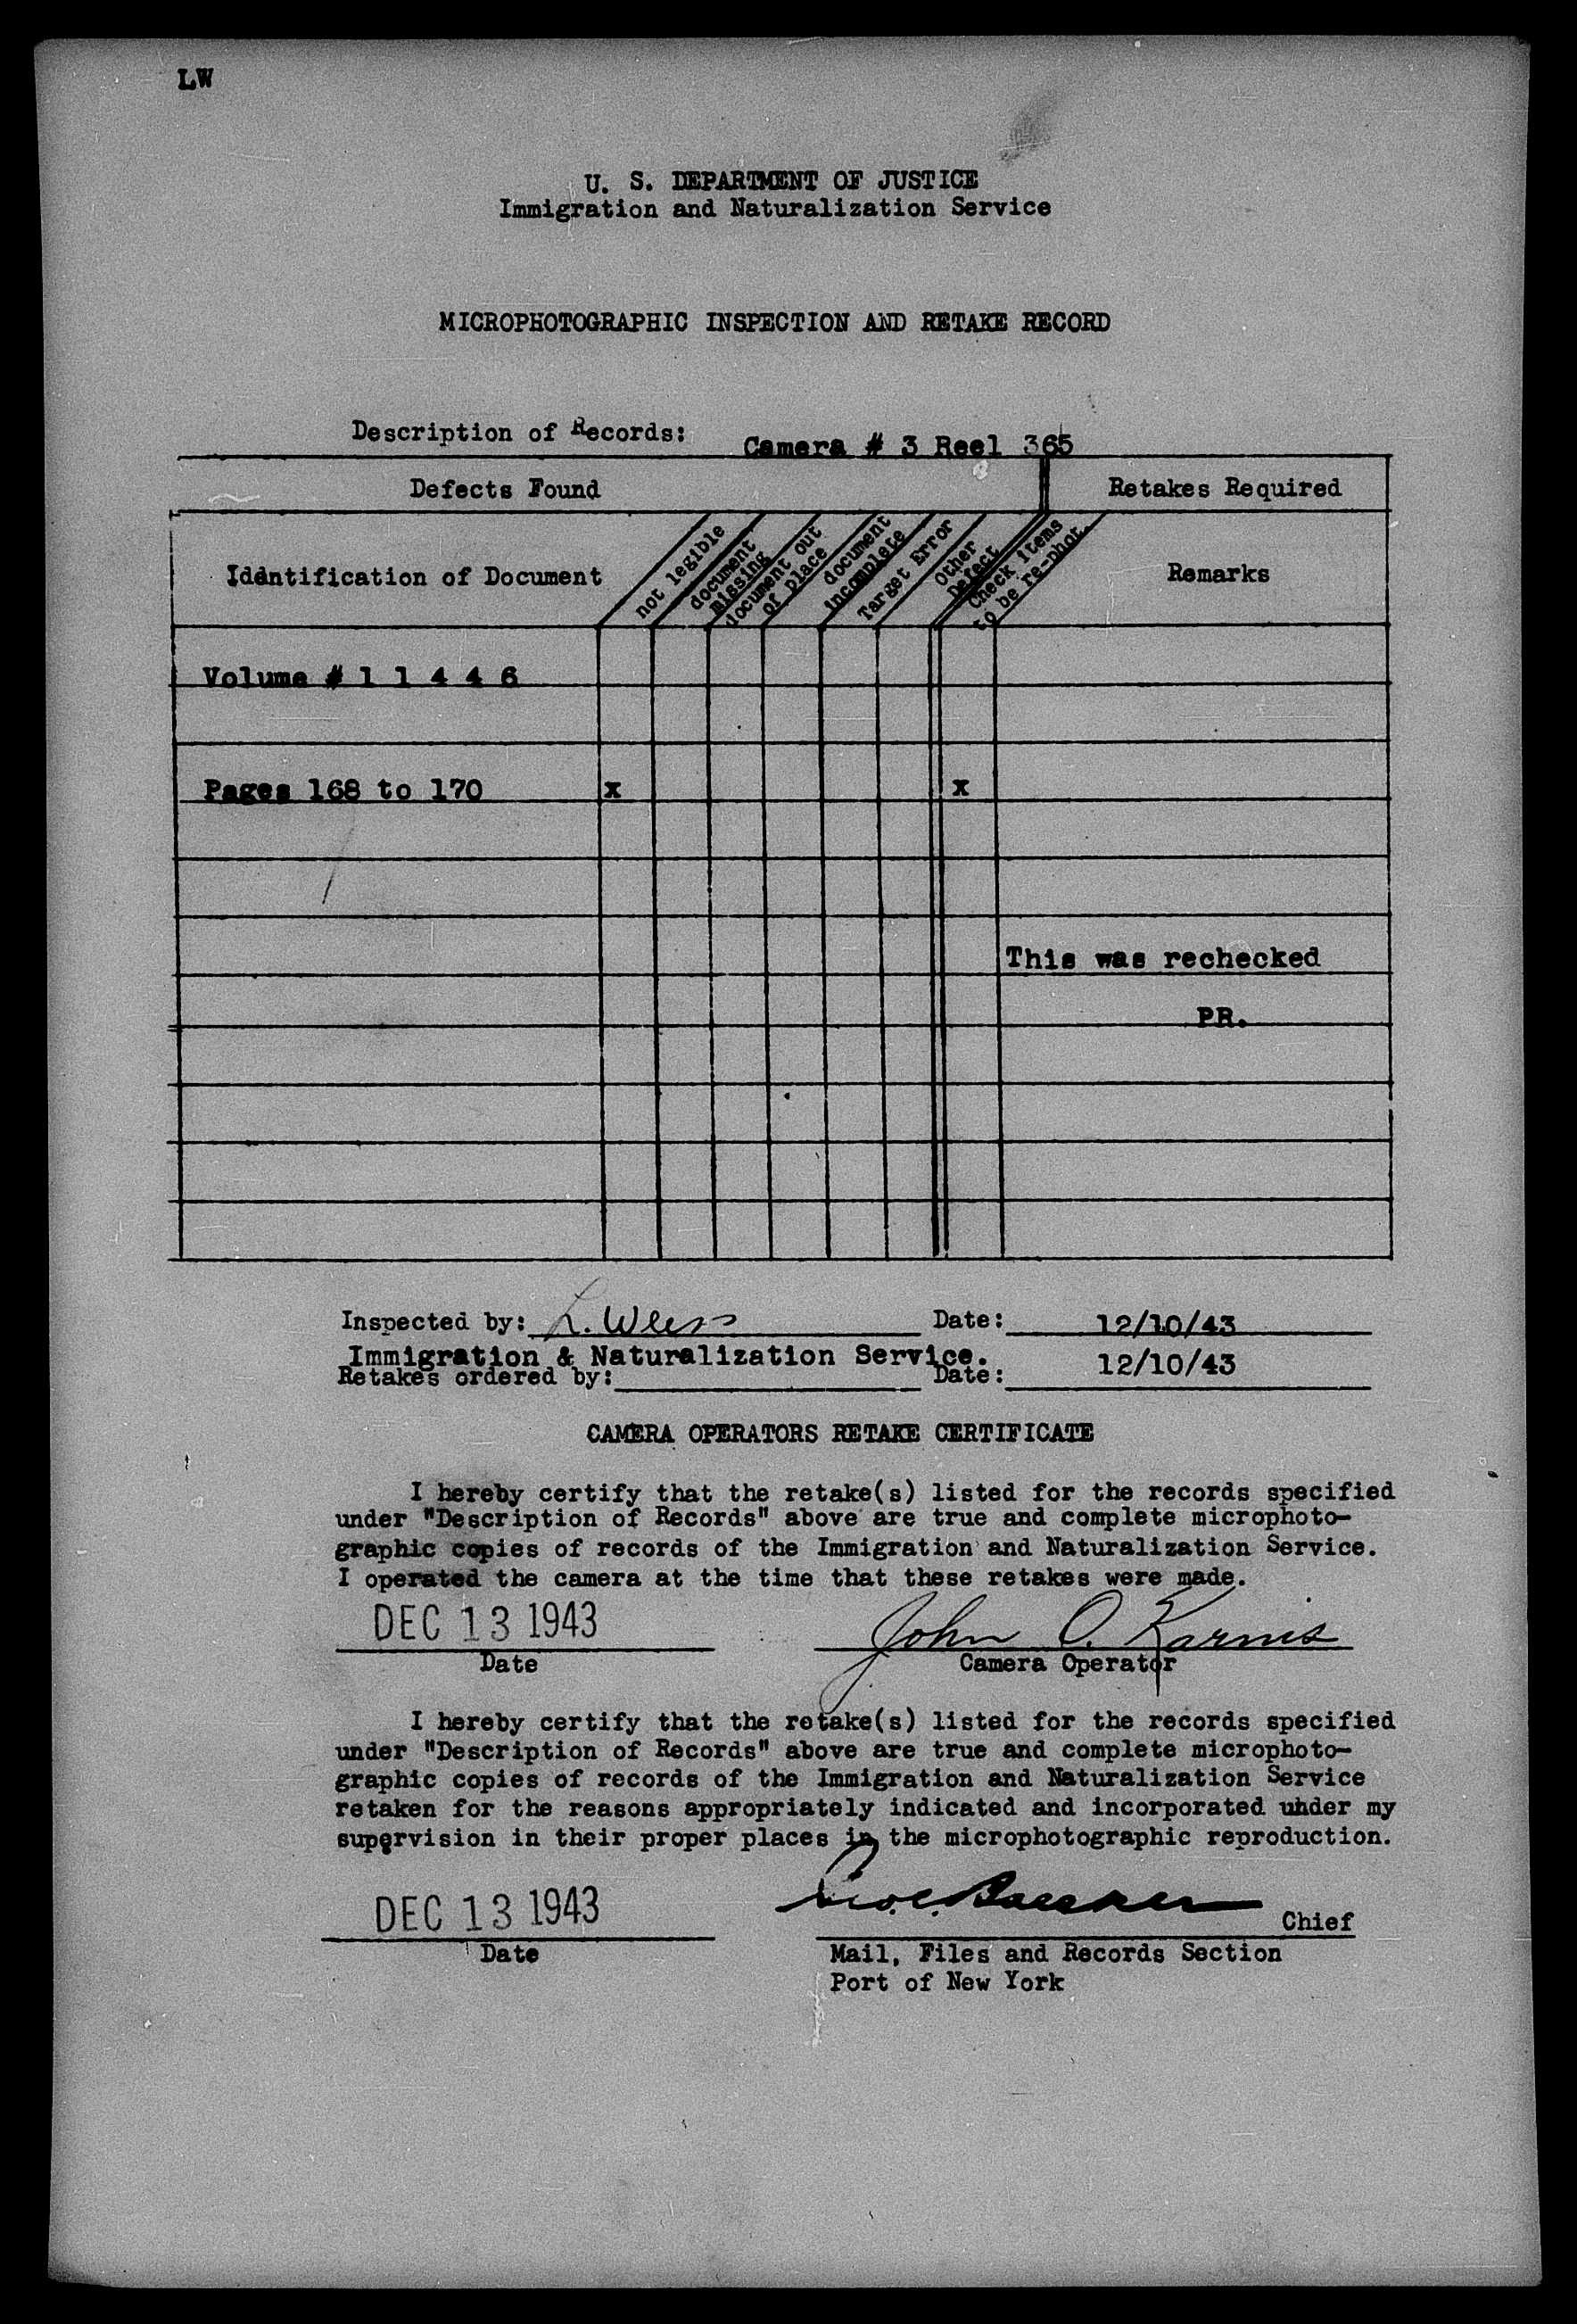 LW
U. S. DEPARTMENT OF JUSTICE
Immigration and Naturalization Service
MICROPHOTOGRAPHIC INSPECTION AND RETAKE RECORD
Description of Records: Camera # 3 Reel 365
Defects Found Retakes Required
Identification of Document
not legible
document
missing
document out
of place
document
incomplete
Target Error
Other
Defect
Check Items
to be re-phot.
Remarks
Volume # 1 1 4 4 6
Pages 168 to 170 x x
This was rechecked
PR.
Inspected by: L. Weiss Date: 12/10/43
Immigration & Naturalization Service. 12/10/43
Retakes ordered by: Date:
CAMERA OPERATORS RETAKE CERTIFICATE
I hereby certify that the retake(s) listed for the records specified
under "Description of Records" above are true and complete microphoto-
graphic copies of records of the Immigration and Naturalization Service.
I operated the camera at the time that these retakes were made.
DEC 13 1943 John O. Karnis
Date Camera Operator
I hereby certify that the retake(s) listed for the records specified
under "Description of Records" above are true and complete microphoto-
graphic copies of records of the Immigration and Naturalization Service
retaken for the reasons appropriately indicated and incorporated under my
supervision in their proper places in the microphotographic reproduction.
DEC 13 1943 Chief
Date Mail, Files and Records Section
Port of New York